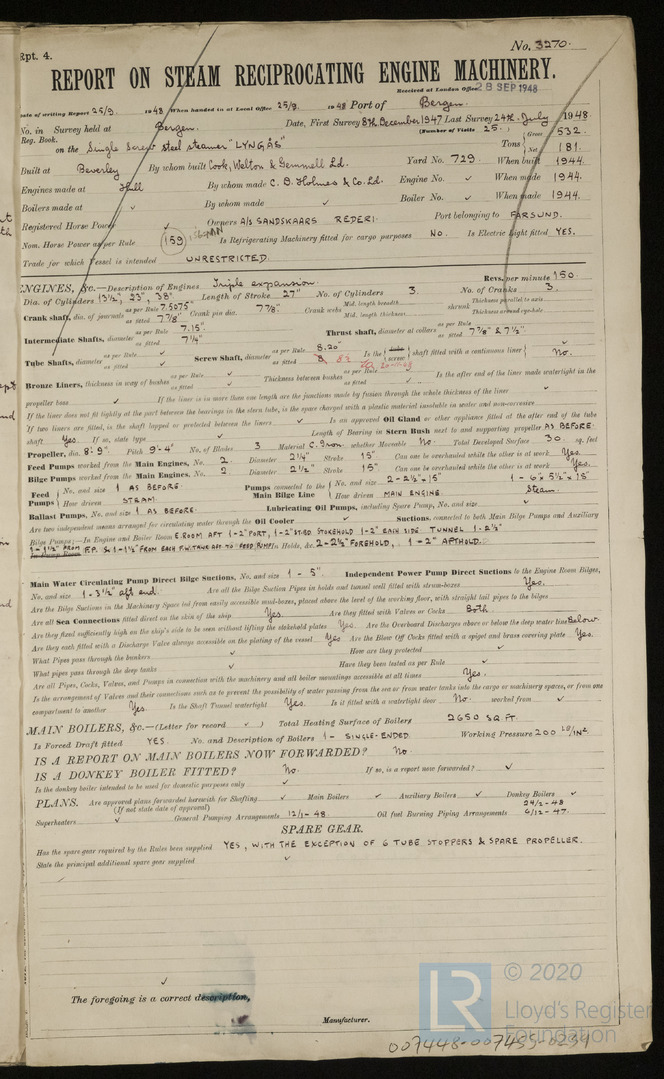 Rpt. 4.
No. 3270.
REPORT ON STEAM RECIPROCATING ENGINE MACHINERY.
Received at London Office 28 SEP 1948
Date of writing Report 25/9. 1948 When handed in at Local Office 25/9. 1948 Port of Bergen.
No. in Survey held at Bergen. Date, First Survey 8th December 1947 Last Survey 24th July 1948
Reg. Book. (Number of Visits 25.)
on the Single Screw steel steamer "LYNGÅS" Tons Gross 532. Net 181.
Built at Beverley By whom built Cook, Welton & Gemmell Ld. Yard No. 729. When built 1944.
Engines made at Hull By whom made C. D. Holmes & Co. Ld. Engine No. ✓ When made 1944.
Boilers made at ✓ By whom made ✓ Boiler No. ✓ When made 1944.
Registered Horse Power ✓ Owners A/S SANDSKAARS REDERI. Port belonging to FARSUND.
Nom. Horse Power as per Rule 159 Is Refrigerating Machinery fitted for cargo purposes NO. Is Electric Light fitted YES.
Trade for which Vessel is intended UNRESTRICTED.
ENGINES, &c.—Description of Engines Triple expansion. Revs. per minute 150.
Dia. of Cylinders 13½", 23", 38" Length of Stroke 27" No. of Cylinders 3. No. of Cranks 3.
Crank shaft, dia. of journals as per Rule 7.5075" as fitted 7⅞" Crank pin dia. 7⅞" Crank webs Mid. length breadth Mid. length thickness shrunk Thickness parallel to axis Thickness around eye-hole
Intermediate Shafts, diameter as per Rule 7.15" as fitted 7¼" Thrust shaft, diameter at collars as per Rule as fitted 7⅞" & 7½"
Tube Shafts, diameter as per Rule ✓ as fitted ✓ Screw Shaft, diameter as per Rule 8.20" as fitted 8½ Is the tube screw shaft fitted with a continuous liner No.
Bronze Liners, thickness in way of bushes as per Rule as fitted ✓ Thickness between bushes as per Rule ✓ as fitted ✓ Is the after end of the liner made watertight in the
propeller boss ✓ If the liner is in more than one length are the junctions made by fusion through the whole thickness of the liner ✓
If the liner does not fit tightly at the part between the bearings in the stern tube, is the space charged with a plastic material insoluble in water and non-corrosive
If two liners are fitted, is the shaft lapped or protected between the liners ✓ Is an approved Oil Gland or other appliance fitted at the after end of the tube
shaft Yes. If so, state type ✓ Length of Bearing in Stern Bush next to and supporting propeller AS BEFORE.
Propeller, dia. 8'-9" Pitch 9'-4" No. of Blades 3 Material C. Iron. whether Moveable No. Total Developed Surface 30 sq. feet
Feed Pumps worked from the Main Engines, No. 2 Diameter 2¼" Stroke 15" Can one be overhauled while the other is at work Yes.
Bilge Pumps worked from the Main Engines, No. 2 Diameter 2½" Stroke 15" Can one be overhauled while the other is at work Yes.
Feed Pumps No. and size 1 AS BEFORE How driven STEAM. Pumps connected to the Main Bilge Line No. and size 2 - 2½" x 15" 1 - 6" x 5½" x 15" How driven MAIN ENGINE. Steam.
Ballast Pumps, No. and size 1 AS BEFORE. Lubricating Oil Pumps, including Spare Pump, No. and size ✓
Are two independent means arranged for circulating water through the Oil Cooler ✓ Suctions, connected to both Main Bilge Pumps and Auxiliary
Bilge Pumps;—In Engine and Boiler Room E.ROOM AFT 1-2" PORT, 1-2" STBD STOKEHOLD 1-2" EACH SIDE TUNNEL 1-2½"
In Holds, &c. 2-2½" FOREHOLD, 1-2" AFTHOLD.
Main Water Circulating Pump Direct Bilge Suctions, No. and size 1 - 5". Independent Power Pump Direct Suctions to the Engine Room Bilges,
No. and size 1 - 3½" aft end. Are all the Bilge Suction Pipes in holds and tunnel well fitted with strum-boxes Yes.
Are the Bilge Suctions in the Machinery Space led from easily accessible mud-boxes, placed above the level of the working floor, with straight tail pipes to the bilges
Are all Sea Connections fitted direct on the skin of the ship Yes. Are they fitted with Valves or Cocks Both.
Are they fixed sufficiently high on the ship's side to be seen without lifting the stokehold plates Yes. Are the Overboard Discharges above or below the deep water line Below
Are they each fitted with a Discharge Valve always accessible on the plating of the vessel Yes Are the Blow Off Cocks fitted with a spigot and brass covering plate Yes.
What Pipes pass through the bunkers ✓ How are they protected ✓
What pipes pass through the deep tanks ✓ Have they been tested as per Rule ✓
Are all Pipes, Cocks, Valves, and Pumps in connection with the machinery and all boiler mountings accessible at all times Yes.
Is the arrangement of Valves and their connections such as to prevent the possibility of water passing from the sea or from water tanks into the cargo or machinery spaces, or from one
compartment to another Yes. Is the Shaft Tunnel watertight Yes. Is it fitted with a watertight door No. worked from ✓
MAIN BOILERS, &c.—(Letter for record ✓ ) Total Heating Surface of Boilers 2650 SQ.FT.
Is Forced Draft fitted YES. No. and Description of Boilers 1 - SINGLE-ENDED Working Pressure 200 LB/IN²
IS A REPORT ON MAIN BOILERS NOW FORWARDED? No.
IS A DONKEY BOILER FITTED? No. If so, is a report now forwarded? ✓
Is the donkey boiler intended to be used for domestic purposes only ✓
PLANS. Are approved plans forwarded herewith for Shafting ✓ Main Boilers ✓ Auxiliary Boilers ✓ Donkey Boilers ✓
(If not state date of approval)
Superheaters ✓ General Pumping Arrangements 12/1-48. Oil fuel Burning Piping Arrangements 24/2-48 6/12-47.
SPARE GEAR.
Has the spare gear required by the Rules been supplied YES, WITH THE EXCEPTION OF 6 TUBE STOPPERS & SPARE PROPELLER.
State the principal additional spare gear supplied ✓
The foregoing is a correct description,
Manufacturer.
LR © 2020
Lloyd's Register
Foundation
007448-007455-0234